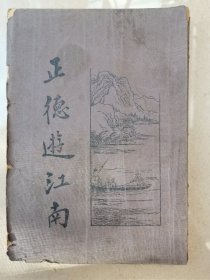 正德遊江南